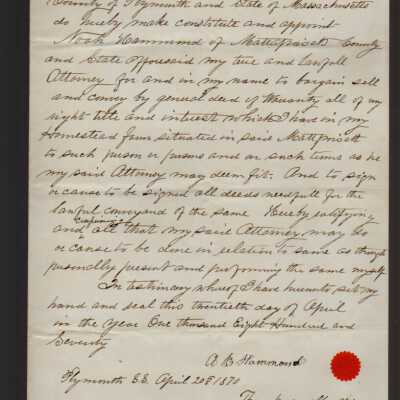 County of Plymouth and State of Massachusetts
do hereby make constitute and appoint
Noah Hammond of Mattapoisett County
and State afforesaid my true and lawfull
Attorney for and in my name to bargain sell
and convey by general deed of Warranty all of my
right title and interest which I have in my
Homestead farm situated in said Mattapoisett
to such person or persons and on such terms as he
my said Attorney may deem fit. And to sign
or cause to be signed all deeds needfull for the
lawful conveyard of the same Hereby ratifying
confirming
and all that my said Attorney may do
or cause to be done in relation to same as though
personally present and performing the same myself
In testimony whereof I have hereunto set my
hand and seal this twentieth day of April
in the year One thousand Eight Hundred and
Seventy
A B Hammond
Plymouth SS. April 20th 1870